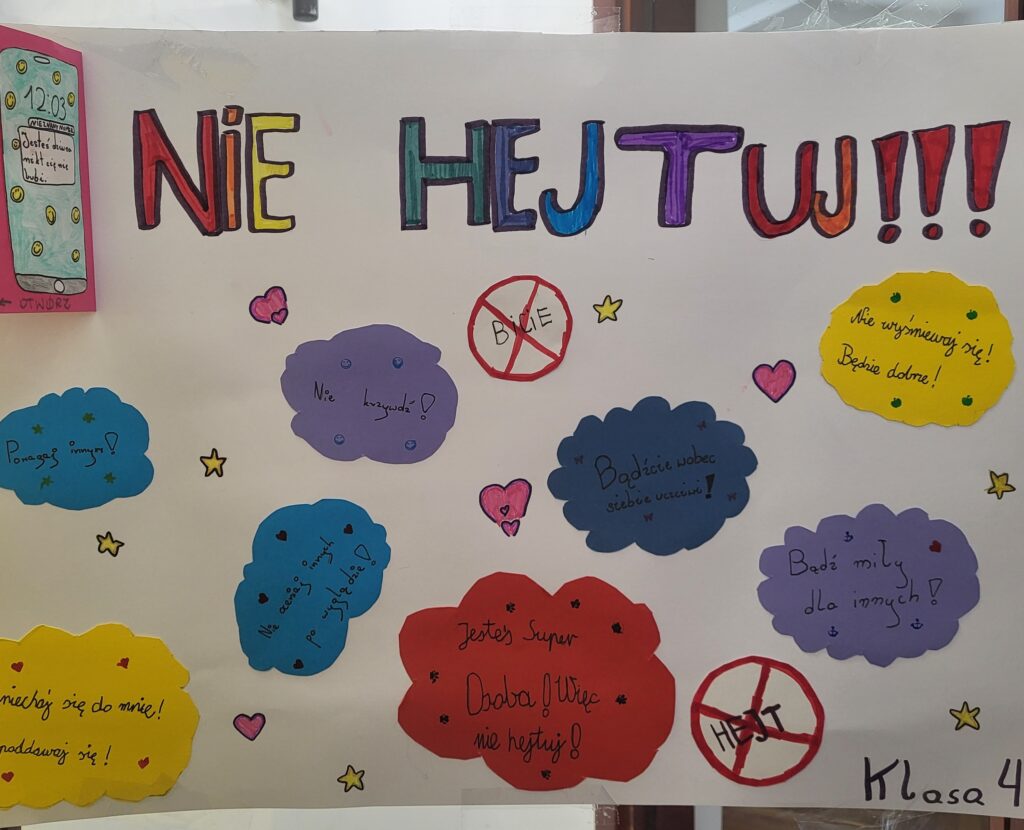 NiE HEJTUJ!!!
12:03
NIEZNANY NUMER
Jesteś dziwna
nikt cię nie
lubi.
← OTWÓRZ
BiCiE
Nie wyśmiewaj się!
Będzie dobrze!
Nie krzywdź!
Pomagaj innym!
Bądźcie wobec
siebie uczciwi!
Nie oceniaj innych
po wyglądzie!
Bądź miły
dla innych!
Jesteś Super
Osoba! Więc
nie hejtuj!
niechaj się do mnie!
poddawaj się!
HEJT
Klasa 4